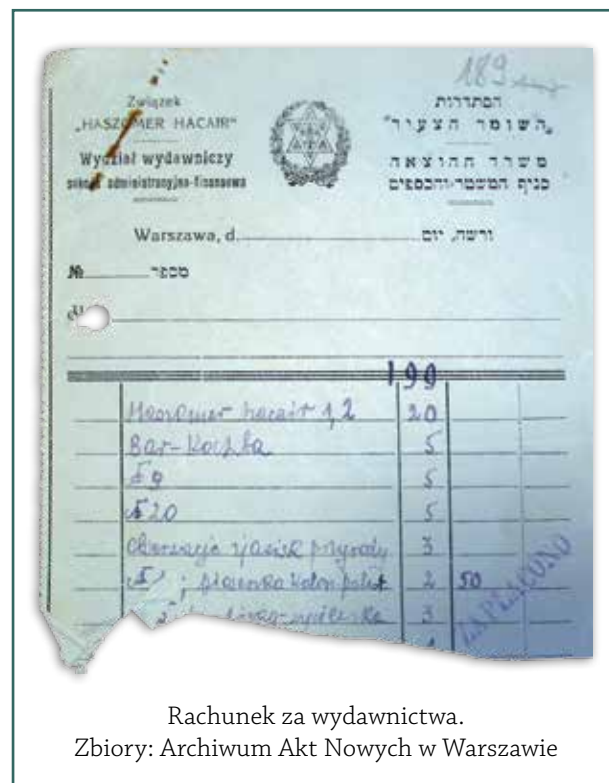 189
Związek
„HASZOMER HACAIR"
Wydział wydawniczy
sekcja administracyjno-finansowa
הסתדרות
„השומר הצעיר"
משרד ההוצאה
סניף המשטר-והכספים
Warszawa, d.
ורשה, יום
№ מספר
190
Haszomer hacair 1, 2 20
Bar-Kochba 5
9 5
20 5
zjawisk przyrody 3
kolon 2 50
3
ZAPŁACONO
Rachunek za wydawnictwa.
Zbiory: Archiwum Akt Nowych w Warszawie